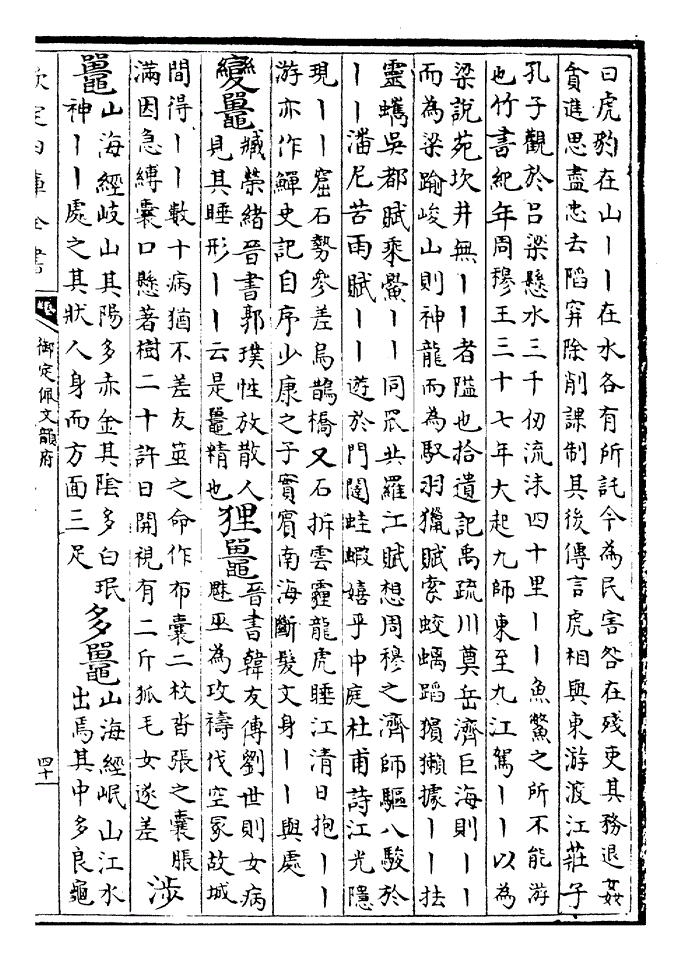 曰虎豹在山丨丨在水各有所託今為民害咎在殘吏其務退姦
貪進思盡忠去陷穽除削課制其後傳言虎相與東游渡江莊子
孔子觀於呂梁懸水三千仞流沫四十里丨丨魚鱉之所不能游
也竹書紀年周穆王三十七年大起九師東至九江駕丨丨以為
梁說苑坎井無丨丨者隘也拾遺記禹疏川奠岳濟巨海則丨丨
而為梁踰峻山則神龍而為馭羽獵賦索蛟螭蹈獱獺據丨丨抾
靈蠵吳都賦乘鱟丨丨同罛共羅江賦想周穆之濟師驅八駿於
丨丨潘尼苦雨賦丨丨遊於門闥蛙蝦嬉乎中庭杜甫詩江光隱
現丨丨窟石勢參差烏鵲橋又石拆雲霾龍虎睡江清日抱丨丨
游亦作鱓史記自序少康之子實賓南海斷髮文身丨丨與處
變鼉
臧榮緒晉書郭璞性放散人
見其睡形丨丨云是鼉精也
狸鼉
晉書韓友傳劉世則女病
魅巫為攻禱伐空冢故城
間得丨丨數十病猶不差友筮之命作布囊二枚沓張之囊脹
滿因急縛囊口懸著樹二十許日開視有二斤狐毛女遂差
涉
鼉
山海經岐山其陽多赤金其陰多白珉
神丨丨處之其狀人身而方面三足
多鼉
山海經岷山江水
出焉其中多良龜
欽定四庫全書
卷
御定佩文韻府
四十